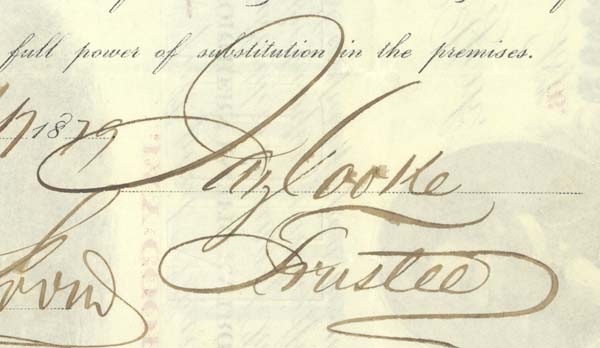 full power of substitution in the premises.
17 1879
Jay Cooke
Trustee